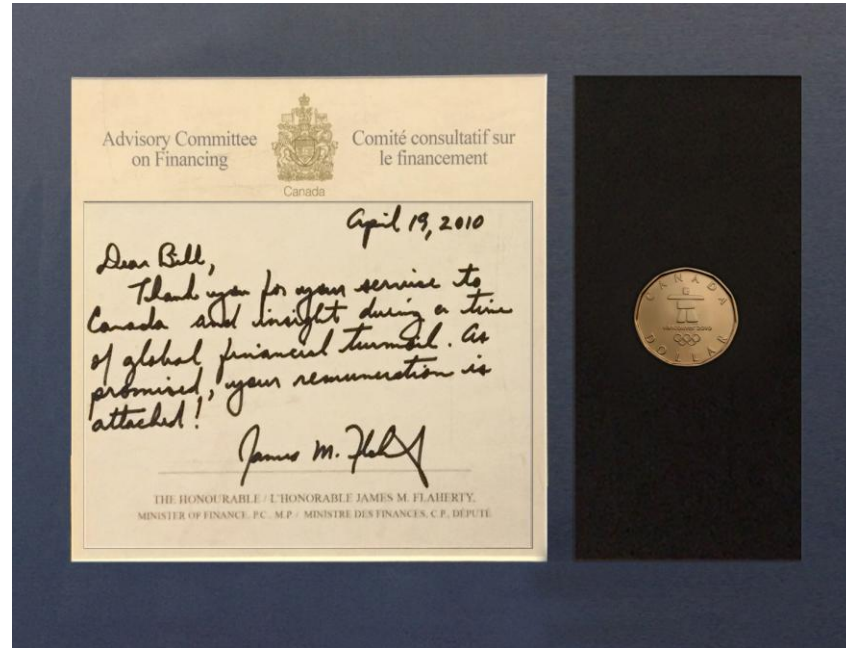 Advisory Committee
on Financing
Comité consultatif sur
le financement
Canada
April 19, 2010
Dear Bill,
Thank you for your service to
Canada and insight during a time
of global financial turmoil. As
promised, your remuneration is
attached!
James M. Flaherty
THE HONOURABLE / L'HONORABLE JAMES M. FLAHERTY,
MINISTER OF FINANCE, P.C., M.P. / MINISTRE DES FINANCES, C.P., DÉPUTÉ
CANADA
VANCOUVER 2010
DOLLAR